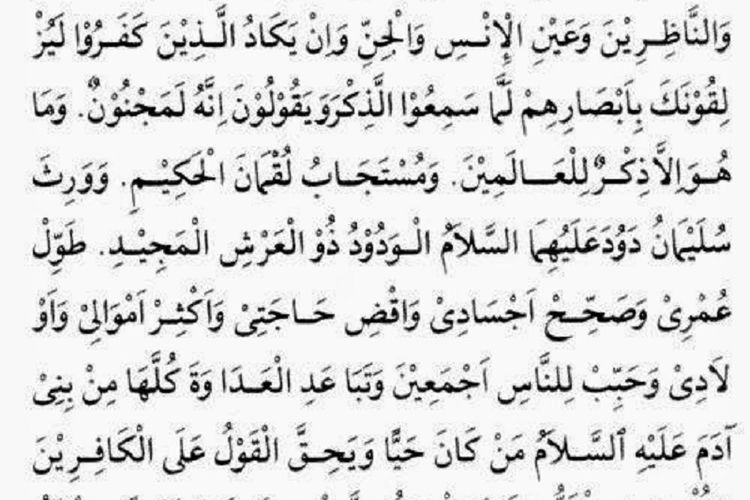 وَالنَّاظِرِيْنَ وَعَيْنِ الْإِنْسِ وَالْجِنِّ وَاِنْ يَكَادُ الَّذِيْنَ كَفَرُوْا لَيُزْ
لِقُوْنَكَ بِاَبْصَارِهِمْ لَمَّا سَمِعُوْا الذِّكْرَ وَيَقُوْلُوْنَ اِنَّهُ لَمَجْنُوْنٌ. وَمَا
هُوَ اِلاَّ ذِكْرٌ لِلْعَالَمِيْنَ. وَمُسْتَجَابُ لُقْمَانَ الْحَكِيْمِ. وَوَرِثَ
سُلَيْمَانُ دَوُدَ عَلَيْهِمَا السَّلاَمُ الْوَدُوْدُ ذُو الْعَرْشِ الْمَجِيْدِ. طَوِّلْ
عُمْرِىْ وَصَحِّحْ اَجْسَادِىْ وَاقْضِ حَاجَتِىْ وَاَكْثِرْ اَمْوَالِىْ وَاَوْ
لَادِىْ وَحَبِّبْ لِلنَّاسِ اَجْمَعِيْنَ وَتَبَا عَدِ الْعَدَا وَةَ كُلَّهَا مِنْ بَنِىْ
آدَمَ عَلَيْهِ السَّلاَمُ مَنْ كَانَ حَيًّا وَيَحِقَّ الْقَوْلُ عَلَى الْكَافِرِيْنَ